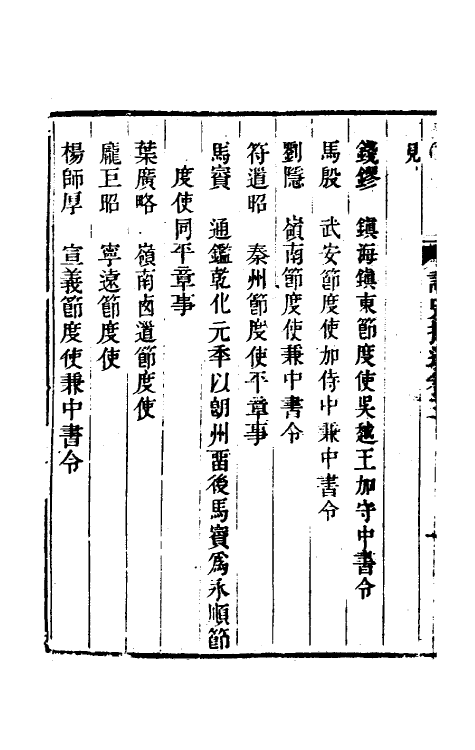 見
錢鏐　鎮海鎮東節度使吳越王加守中書令
馬殷　武安節度使加侍中兼中書令
劉隱　嶺南節度使兼中書令
符道昭　秦州節度使平章事
馬賨　通鑑乾化元年以朗州留後馬賨爲永順節
度使同平章事
葉廣略　嶺南西道節度使
龐巨昭　寧遠節度使
楊師厚　宣義節度使兼中書令